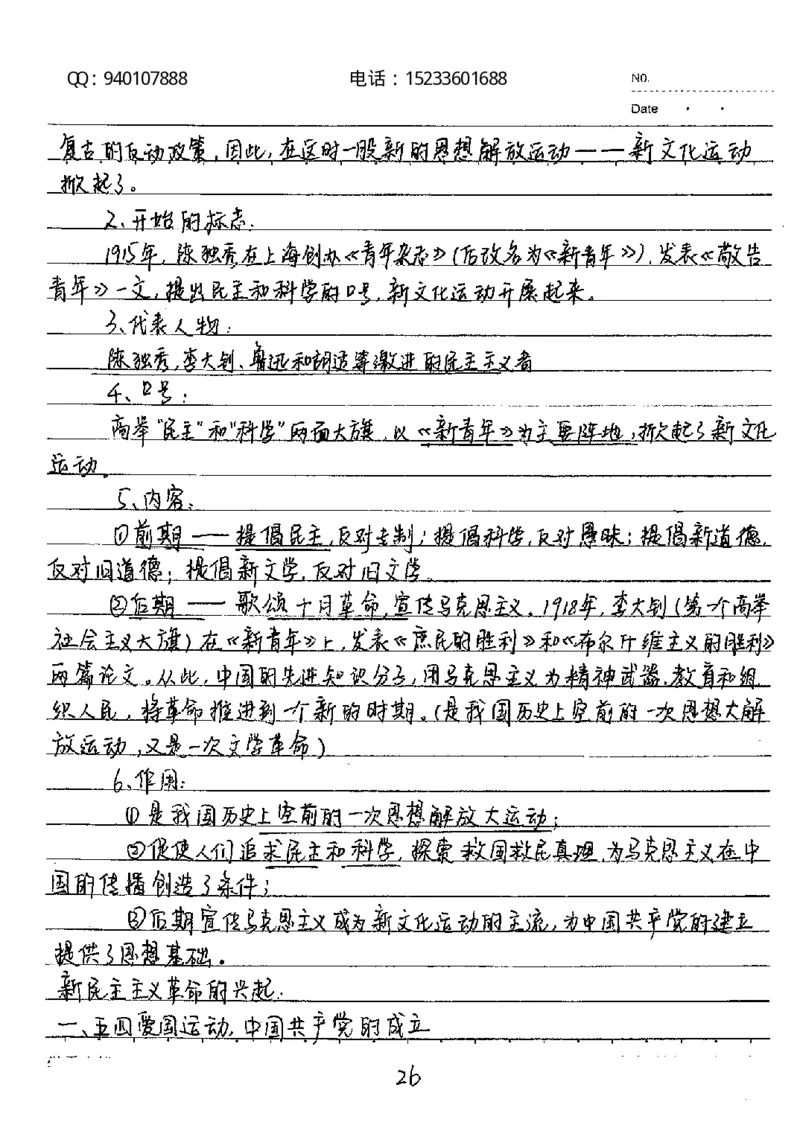 QQ：940107888 电话：15233601688 NO.
Date
复古的反动政策，因此，在这时一股新的思想解放运动——新文化运动
掀起了。
2、开始的标志：
1915年，陈独秀在上海创办《青年杂志》（后改名为《新青年》），发表《敬告
青年》一文，提出民主和科学的口号，新文化运动开展起来。
3、代表人物：
陈独秀，李大钊、鲁迅和胡适等激进的民主主义者
4、口号：
高举"民主"和"科学"两面大旗，以《新青年》为主要阵地，掀起了新文化
运动。
5、内容：
①前期——提倡民主，反对专制；提倡科学，反对愚昧；提倡新道德，
反对旧道德；提倡新文学，反对旧文学。
②后期——歌颂十月革命，宣传马克思主义。1918年，李大钊（第一个高举
社会主义大旗）在《新青年》上，发表《庶民的胜利》和《布尔什维主义的胜利》
两篇论文。从此，中国的先进知识分子，用马克思主义为精神武器，教育和组
织人民，将革命推进到一个新的时期。（是我国历史上空前的一次思想大解
放运动，又是一次文学革命）
6、作用：
①是我国历史上空前的一次思想解放大运动；
②促使人们追求民主和科学，探索救国救民真理，为马克思主义在中
国的传播创造了条件；
③后期宣传马克思主义成为新文化运动的主流，为中国共产党的建立
提供了思想基础。
新民主主义革命的兴起：
一、五四爱国运动，中国共产党的成立
26